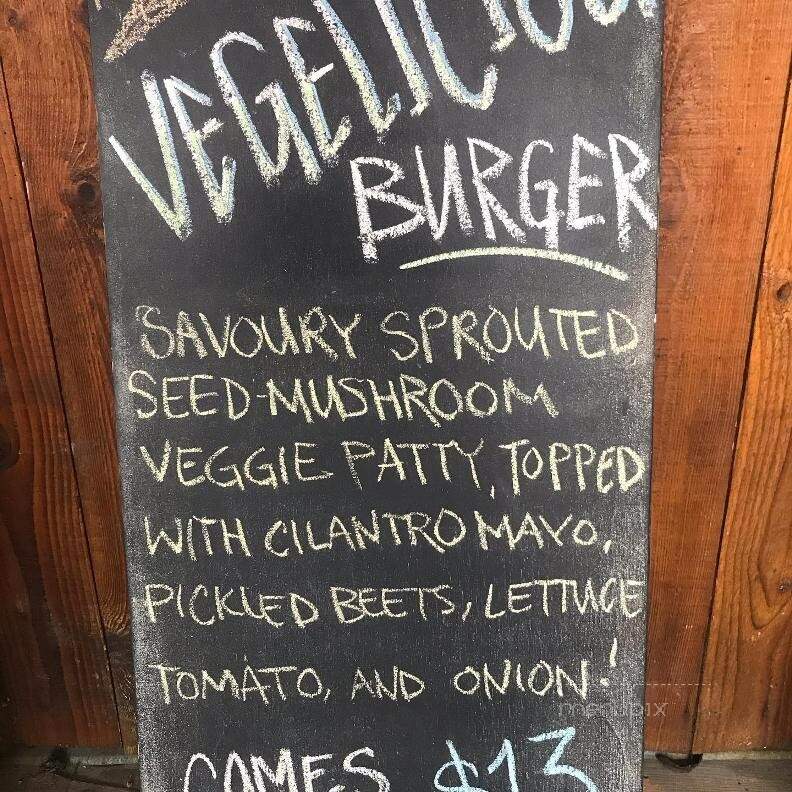 VEGELICIOUS
BURGER
SAVOURY SPROUTED
SEED-MUSHROOM
VEGGIE PATTY, TOPPED
WITH CILANTRO MAYO,
PICKLED BEETS, LETTUCE
TOMATO, AND ONION!
menupix
COMES $13